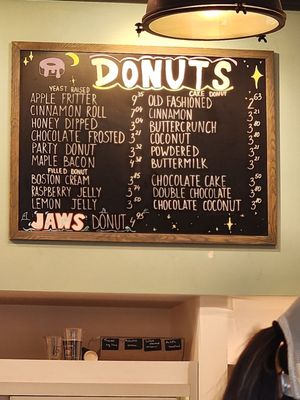 DONUTS
YEAST RAISED
APPLE FRITTER
CINNAMON ROLL
HONEY DIPPED
CHOCOLATE FROSTED 3.21
PARTY DONUT 3.32
MAPLE BACON 4.38
FILLED DONUT
BOSTON CREAM 3.85
RASPBERRY JELLY 3.74
LEMON JELLY 3.50
JAWS DONUT 4.95
CAKE DONUT
OLD FASHIONED 2.63
CINNAMON
BUTTERCRUNCH
COCONUT
POWDERED
BUTTERMILK 3.21
CHOCOLATE CAKE 3.50
DOUBLE CHOCOLATE 3.50
CHOCOLATE COCONUT 3.80